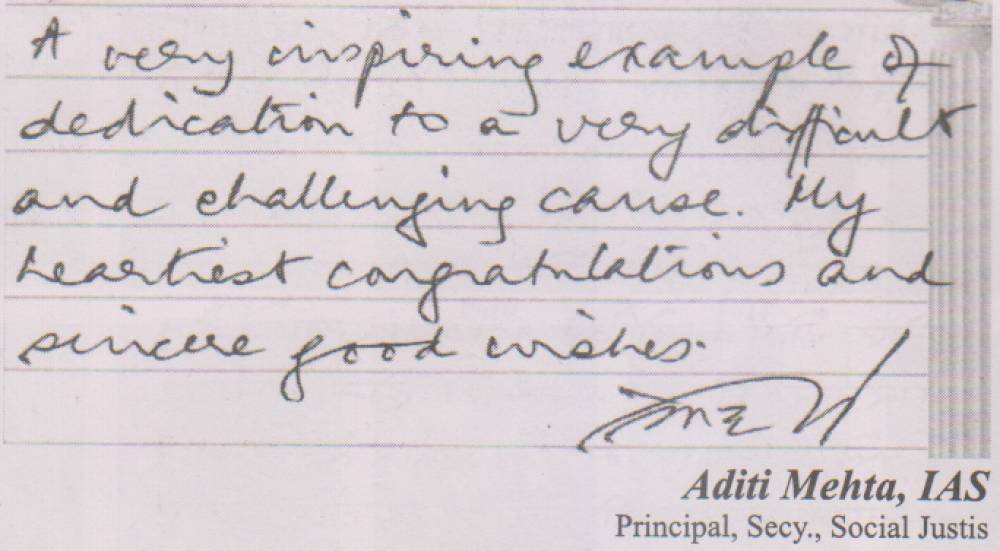 A very inspiring example of
dedication to a very difficult
and challenging cause. My
heartiest congratulations and
sincere good wishes.
Aditi Mehta, IAS
Principal, Secy., Social Justis